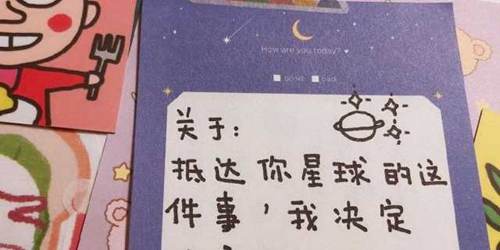 How are you today?
关于:
抵达你星球的这
件事,我决定